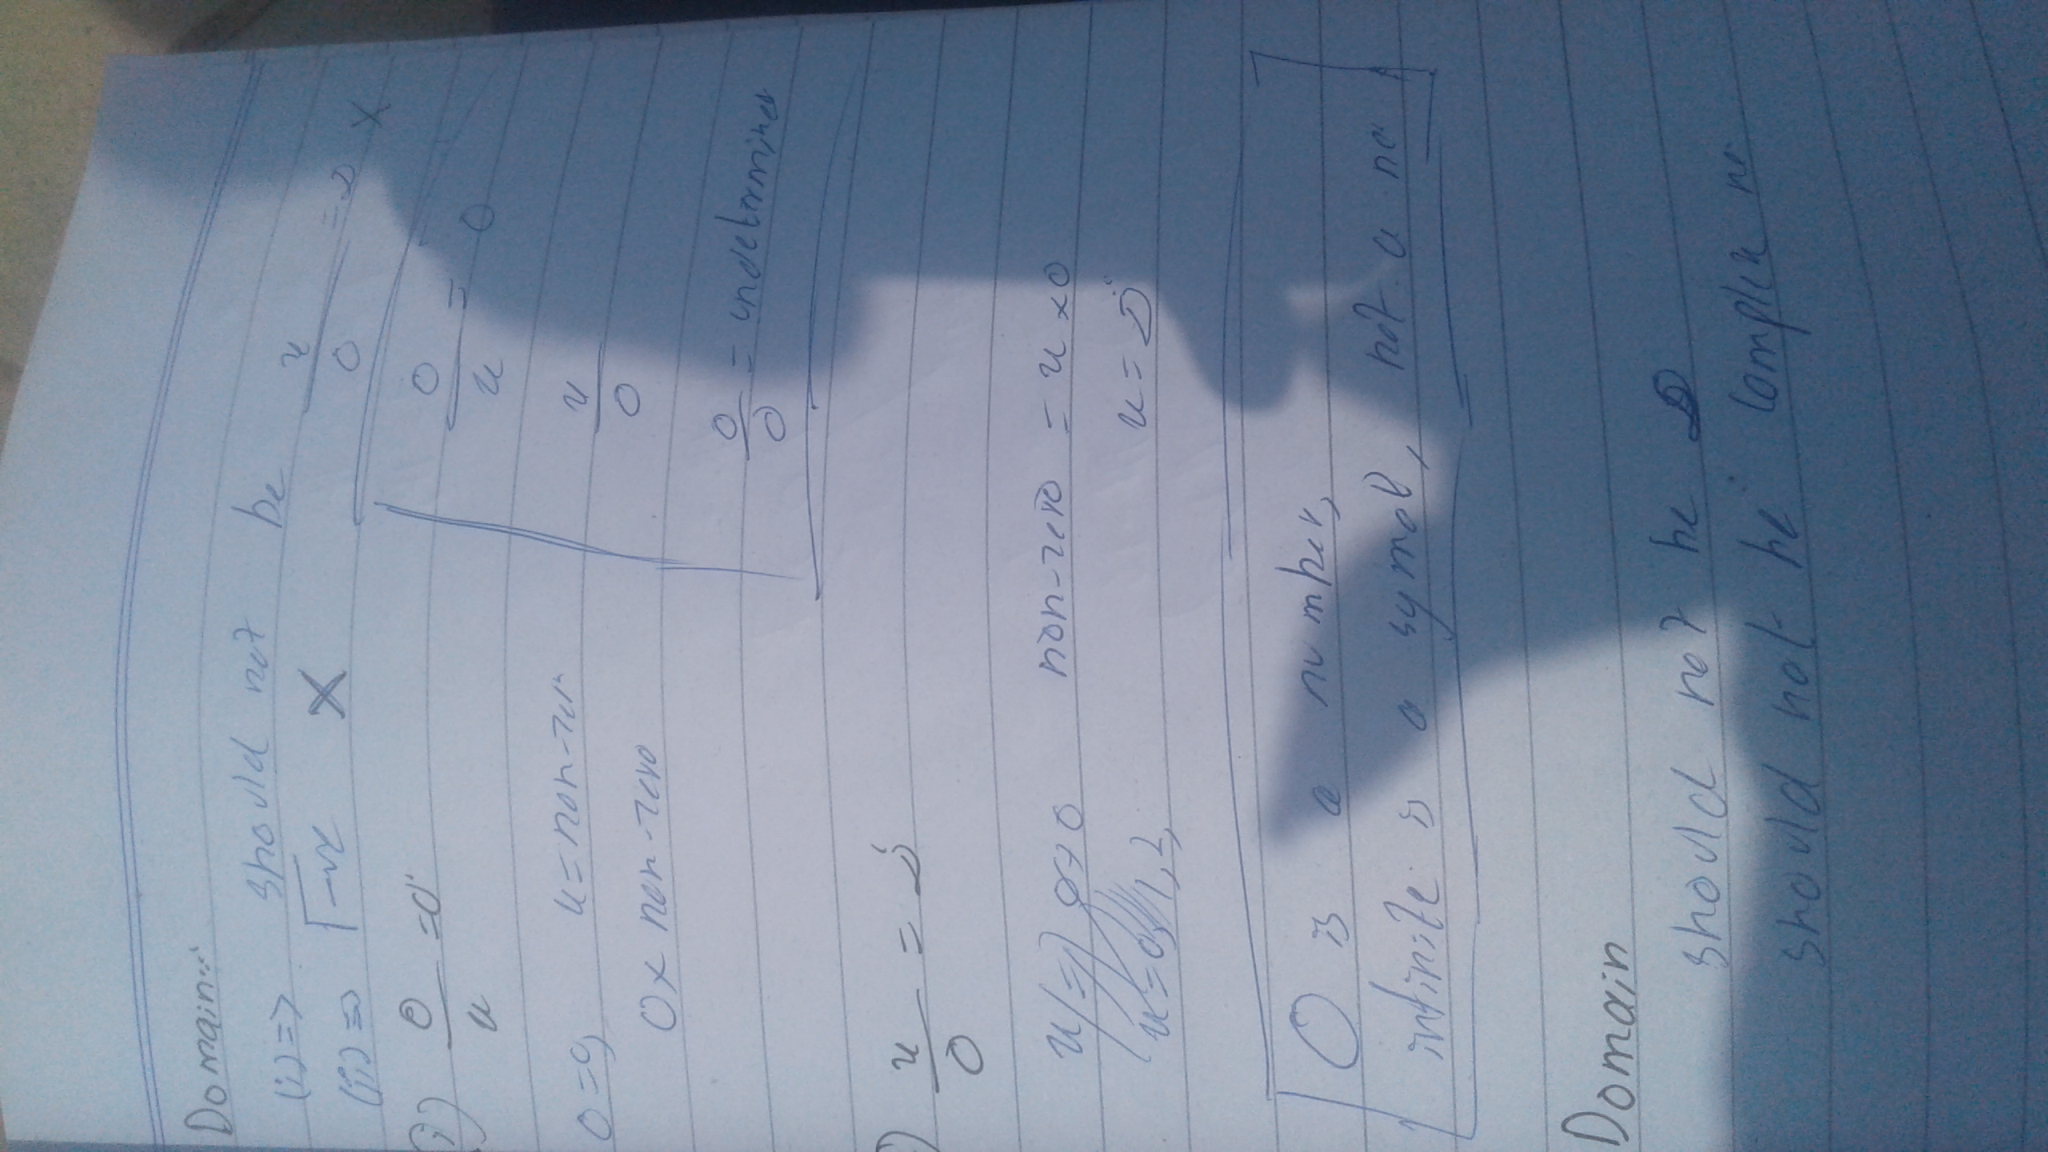 Domain:-
(i) => should not be x/0 = ∞ ×
(ii) => √-ve ×
i) 0/x = 0
0 = 0, x = non-zero
0 × non-zero
0/x = 0
x/0
0/0 = undetermined
x/0 = ∞
non-zero = x × 0
x = ∞
0 is a number,
infinite is a symbol, not a no
Domain
should not be ∞
should not be complex no